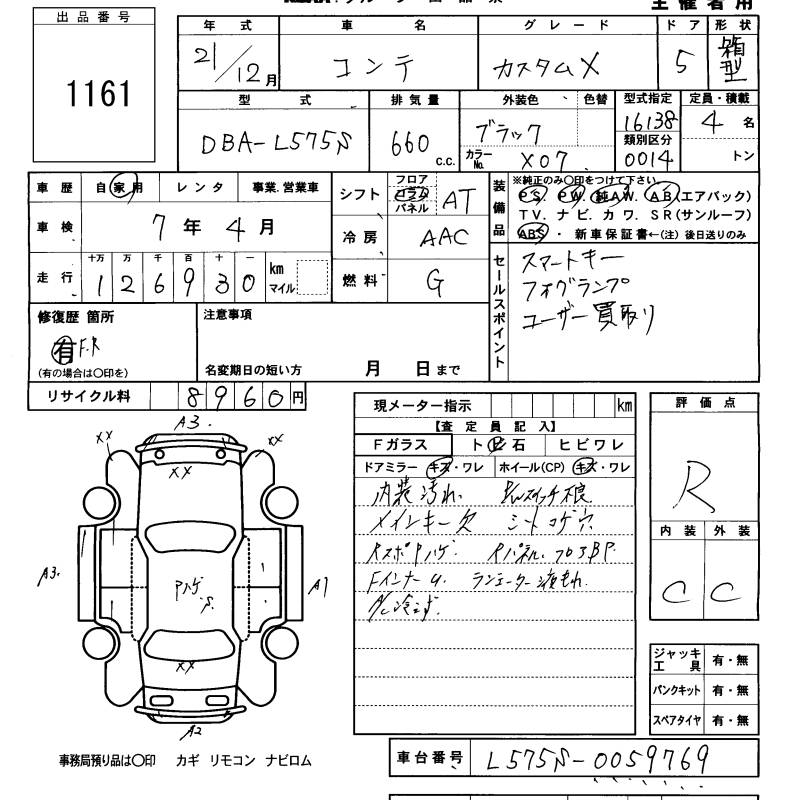 主催者用
出品番号
1161
年式 車名 グレード ドア 形状
21/12月 コンテ カスタムX 5 箱型
型式 排気量 外装色 色替 型式指定 定員・積載
DBA-L575S 660 c.c. ブラック 16138 4名
カラーNo. X07 類別区分 0014 トン
車歴 自家用 レンタ 事業.営業車
車検 7年4月
走行 十万 万 千 百 十 一
126930 km マイル
シフト フロア コラム パネル AT
冷房 AAC
燃料 G
装備品 ※純正のみ○印をつけて下さい
PS. PW. 純AW. AB(エアバック)
TV. ナビ. カワ. SR(サンルーフ)
ABS・新車保証書←(注)後日送りのみ
セールスポイント
スマートキー
フォグランプ
ユーザー買取り
修復歴 箇所 注意事項
有 F.R
(有の場合は○印を) 名変期日の短い方 月 日まで
リサイクル料 8960円
現メーター指示 km
【査定員記入】
Fガラス トビ石 ヒビワレ
ドアミラー キズ・ワレ ホイール(CP) キズ・ワレ
内装汚れ PWスイッチ不良
メインキー欠 シートコゲ穴
Rパネル.
Fインナー
A/C冷えず
評価点
R
内装 外装
C C
ジャッキ工具 有・無
パンクキット 有・無
スペアタイヤ 有・無
A3.
XX XX
XX
A3. Pハゲ S. A1
XX
A2
事務局預り品は○印 カギ リモコン ナビロム
車台番号 L575S-0059769